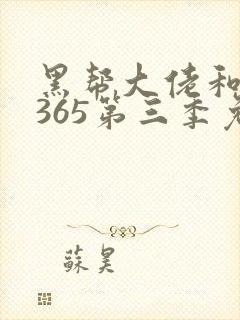 黑帮大佬和
365第三季免
苏昊